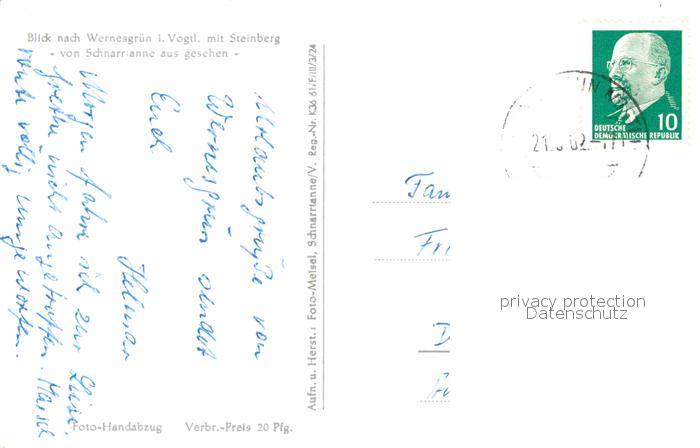 Blick nach Wernesgrün i. Vogtl. mit Steinberg
- von Schnarrtanne aus gesehen -
Urlaubsgrüße von
Wernesgrün sendet
Euch
Helmar
Morgen fahre ich zur Luise.
nicht angetroffen.
völlig umgeworfen.
Foto-Handabzug Verbr.-Preis 20 Pfg.
Aufn. u. Herst.: Foto-Meisel, Schnarrtanne/V. Reg.-Nr. K36 61/F/III/3/24
10
DEUTSCHE
DEMOKRATISCHE REPUBLIK
Fam
Fri
D
privacy protection
Datenschutz